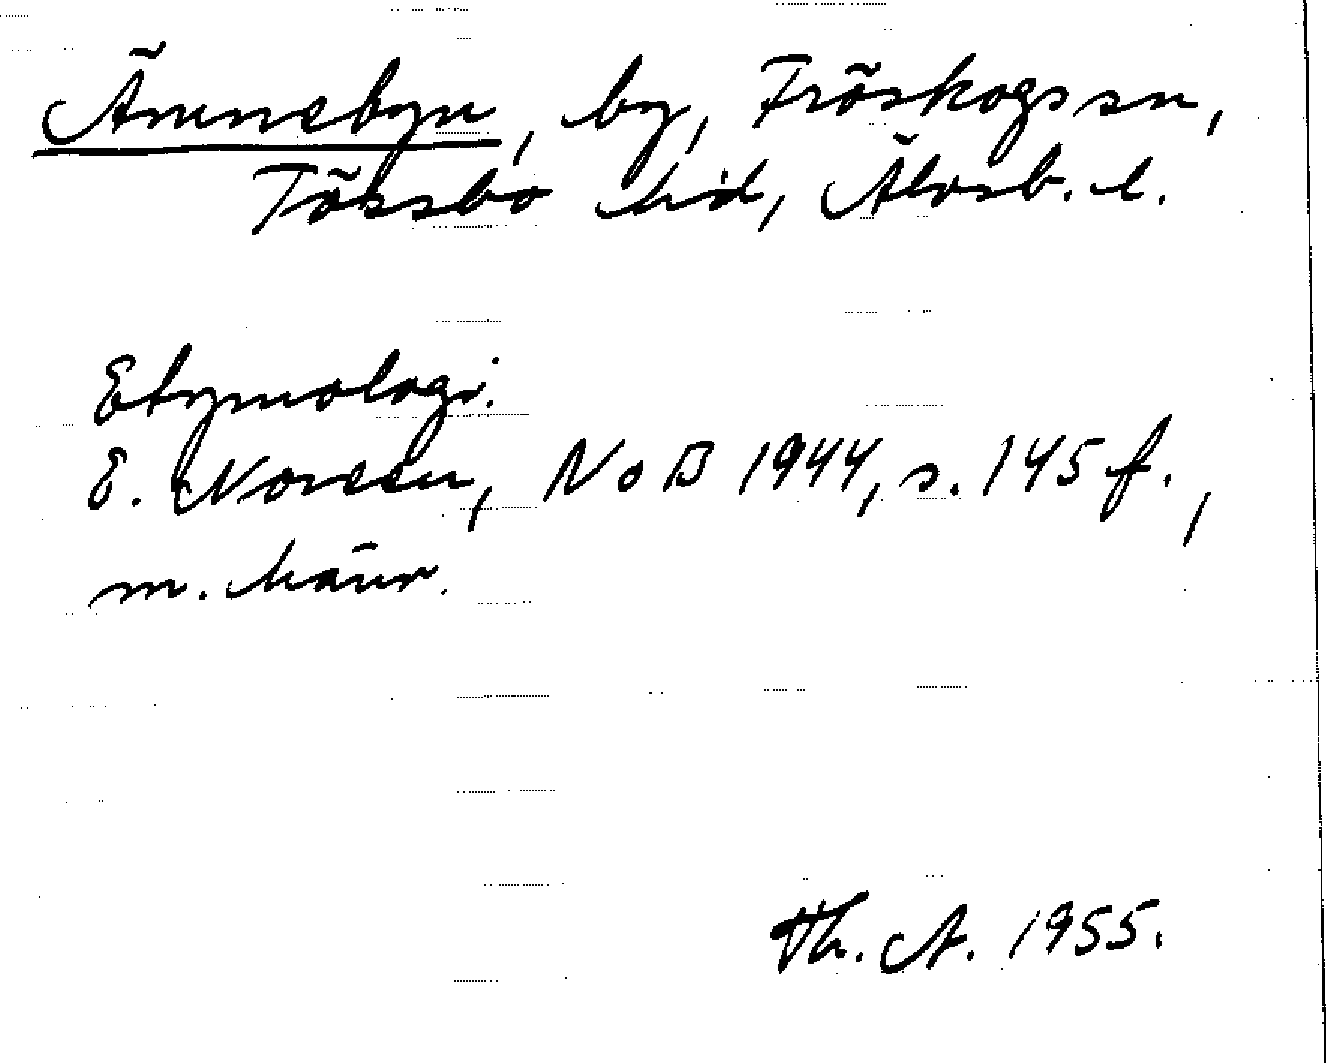 Ämnebyn, by, Fröskogs sn,
Tössbo hd, Älvsb. l.
Etymologi.
E. Noreen, NoB 1944, s. 145 f.,
m. hänv.
Th. A. 1955.